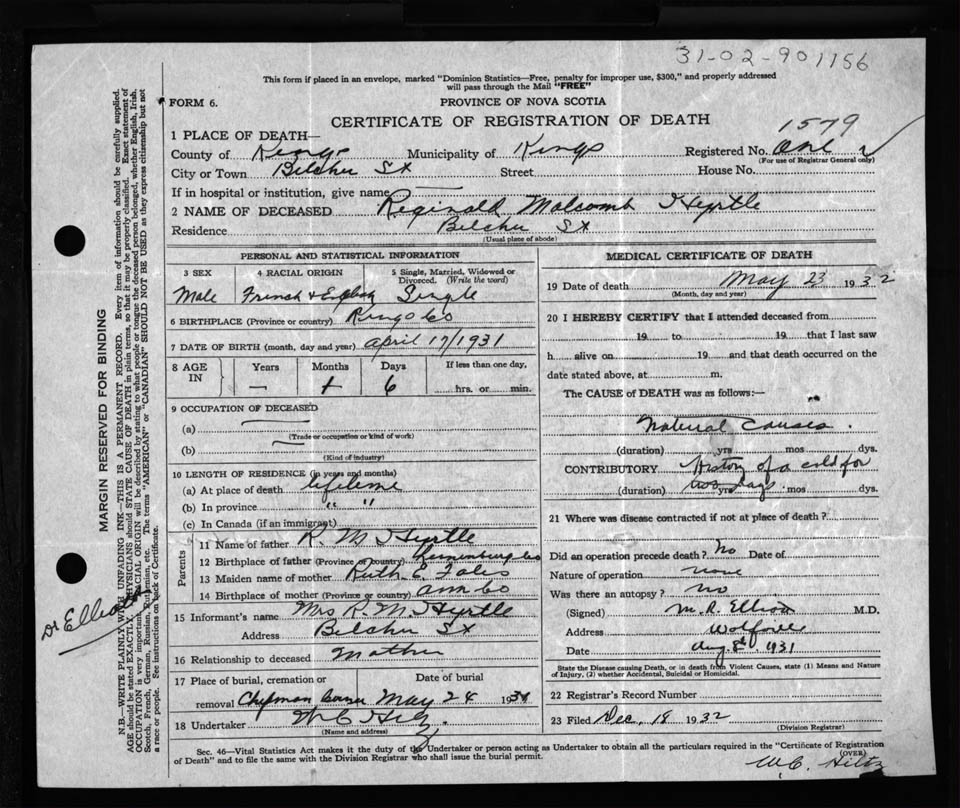 31-02-901156
This form if placed in an envelope, marked "Dominion Statistics—Free, penalty for improper use, $300," and properly addressed
will pass through the Mail "FREE"
FORM 6.
PROVINCE OF NOVA SCOTIA
CERTIFICATE OF REGISTRATION OF DEATH
1579
1 PLACE OF DEATH—
County of Kings Municipality of Kings Registered No. one
(For use of Registrar General only)
City or Town Belcher St Street House No.
If in hospital or institution, give name
2 NAME OF DECEASED Reginald Malcomb Hyrtle
Residence Belcher St
(Usual place of abode)
PERSONAL AND STATISTICAL INFORMATION
3 SEX 4 RACIAL ORIGIN 5 Single, Married, Widowed or Divorced. (Write the word)
Male French & English Single
6 BIRTHPLACE (Province or country) Kings Co
7 DATE OF BIRTH (month, day and year) April 17/1931
8 AGE IN Years Months Days If less than one day,
— 1 6 hrs. or min.
9 OCCUPATION OF DECEASED
(a)
(Trade or occupation or kind of work)
(b)
(Kind of industry)
10 LENGTH OF RESIDENCE (in years and months)
(a) At place of death lifetime
(b) In province " "
(c) In Canada (if an immigrant)
Parents
11 Name of father R. M. Hyrtle
12 Birthplace of father (Province or country) Lunenburg Co
13 Maiden name of mother Ruth E.
14 Birthplace of mother (Province or country)
15 Informant's name Mrs R. M. Hyrtle
Address Belcher St
16 Relationship to deceased Mother
17 Place of burial, cremation or removal Date of burial
May 24 1931
18 Undertaker W C Hiltz
(Name and address)
MEDICAL CERTIFICATE OF DEATH
19 Date of death May 23 1932
(Month, day and year)
20 I HEREBY CERTIFY that I attended deceased from
19 to 19 that I last saw
h alive on 19 and that death occurred on the
date stated above, at m.
The CAUSE of DEATH was as follows:—
Natural Causes.
(duration) yrs mos dys.
CONTRIBUTORY History of a cold for
(duration) two days yrs mos dys.
21 Where was disease contracted if not at place of death?
Did an operation precede death? No Date of
Nature of operation none
Was there an autopsy? no
(Signed) M. R. Elliott M.D.
Address Wolfville
Date Aug 8th 1931
State the Disease causing Death, or in death from Violent Causes, state (1) Means and Nature
of Injury, (2) whether Accidental, Suicidal or Homicidal.
22 Registrar's Record Number
23 Filed Dec. 18 1932
(Division Registrar)
Sec. 46—Vital Statistics Act makes it the duty of the Undertaker or person acting as Undertaker to obtain all the particulars required in the "Certificate of Registration
of Death" and to file the same with the Division Registrar who shall issue the burial permit.
(OVER)
W.C. Hiltz
MARGIN RESERVED FOR BINDING
N.B.—WRITE PLAINLY WITH UNFADING INK—THIS IS A PERMANENT RECORD. Every item of information should be carefully supplied.
AGE should be stated EXACTLY. PHYSICIANS should STATE CAUSE OF DEATH in plain terms, so that it may be properly classified. Exact statement of
OCCUPATION is very important. RACIAL ORIGIN will be described by stating to what people or tongue the deceased person belonged, whether English, Irish,
Scotch, French, German, Russian, Ruthenian, etc. The terms "AMERICAN" or "CANADIAN" SHOULD NOT BE USED as they express citizenship but not
a race or people. See instructions on back of Certificate.
Dr Elliott